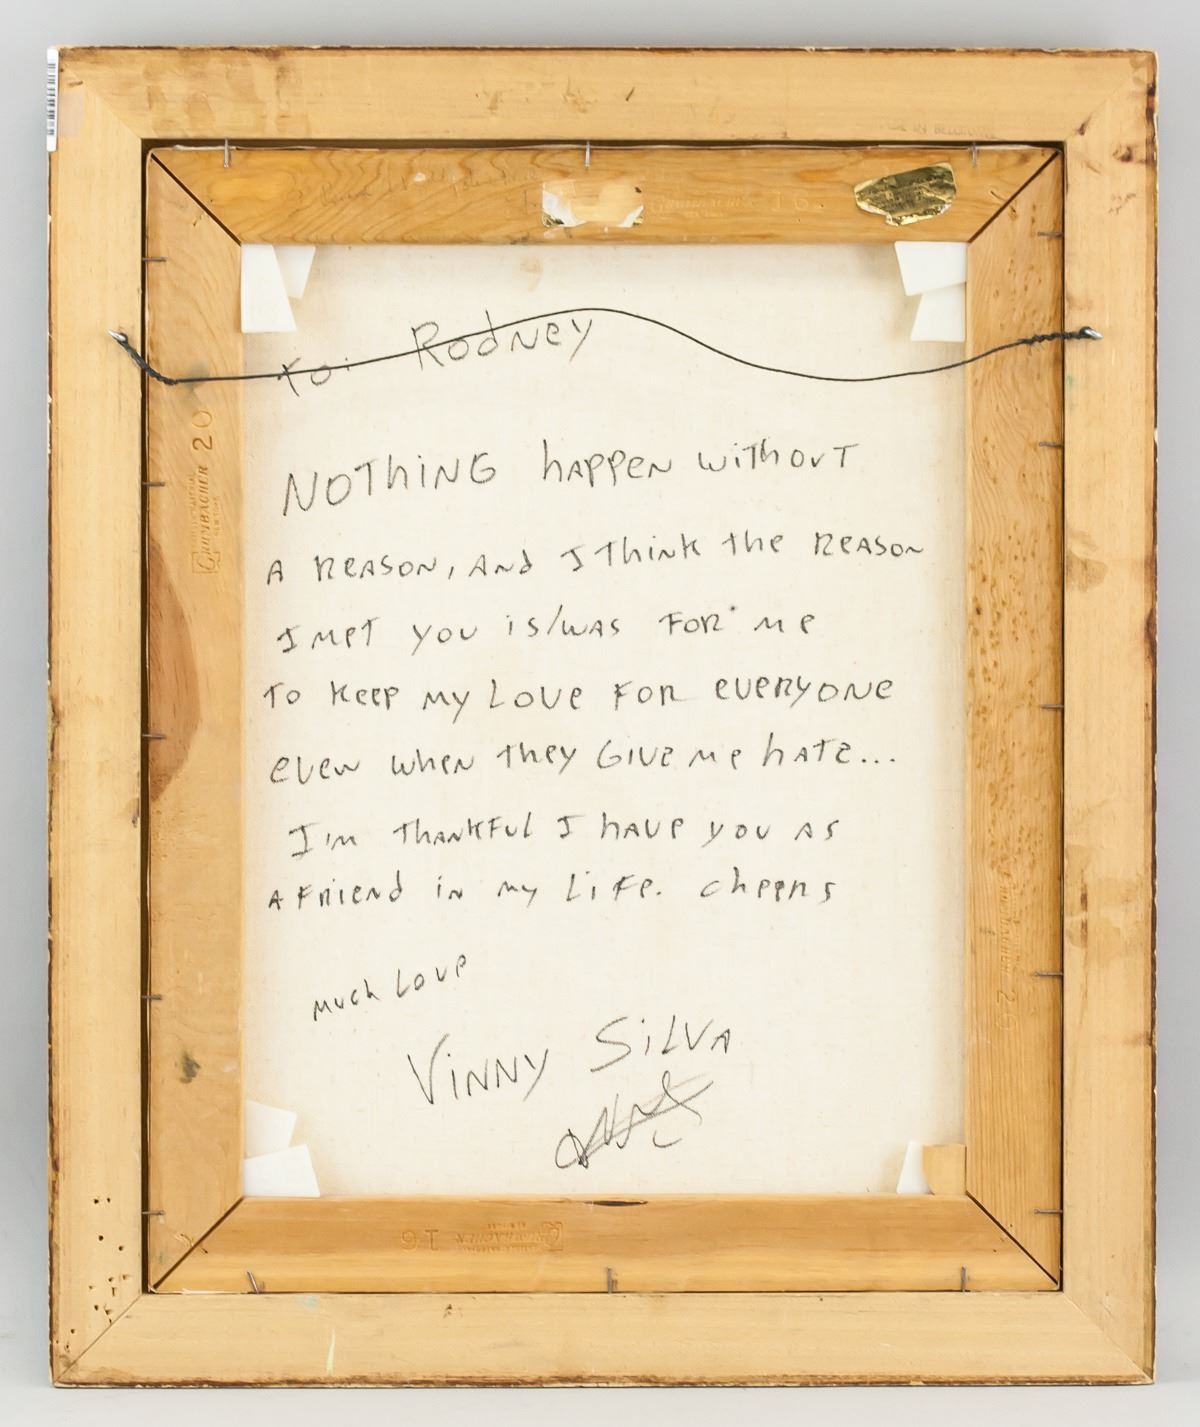 To: Rodney
NOTHING happen without
A REASON, AND I Think the REASON
I MeT you is/was FOR me
To Keep my LOVE FOR everyone
even when they GIVE me hATE...
I'm THANKFUL I have you AS
A FRIEND in my LIFE. Cheers
much Love
VINNY SILVA
GRUMBACHER 20
NEW YORK
GRUMBACHER 16
GRUMBACHER 20
GRUMBACHER 16